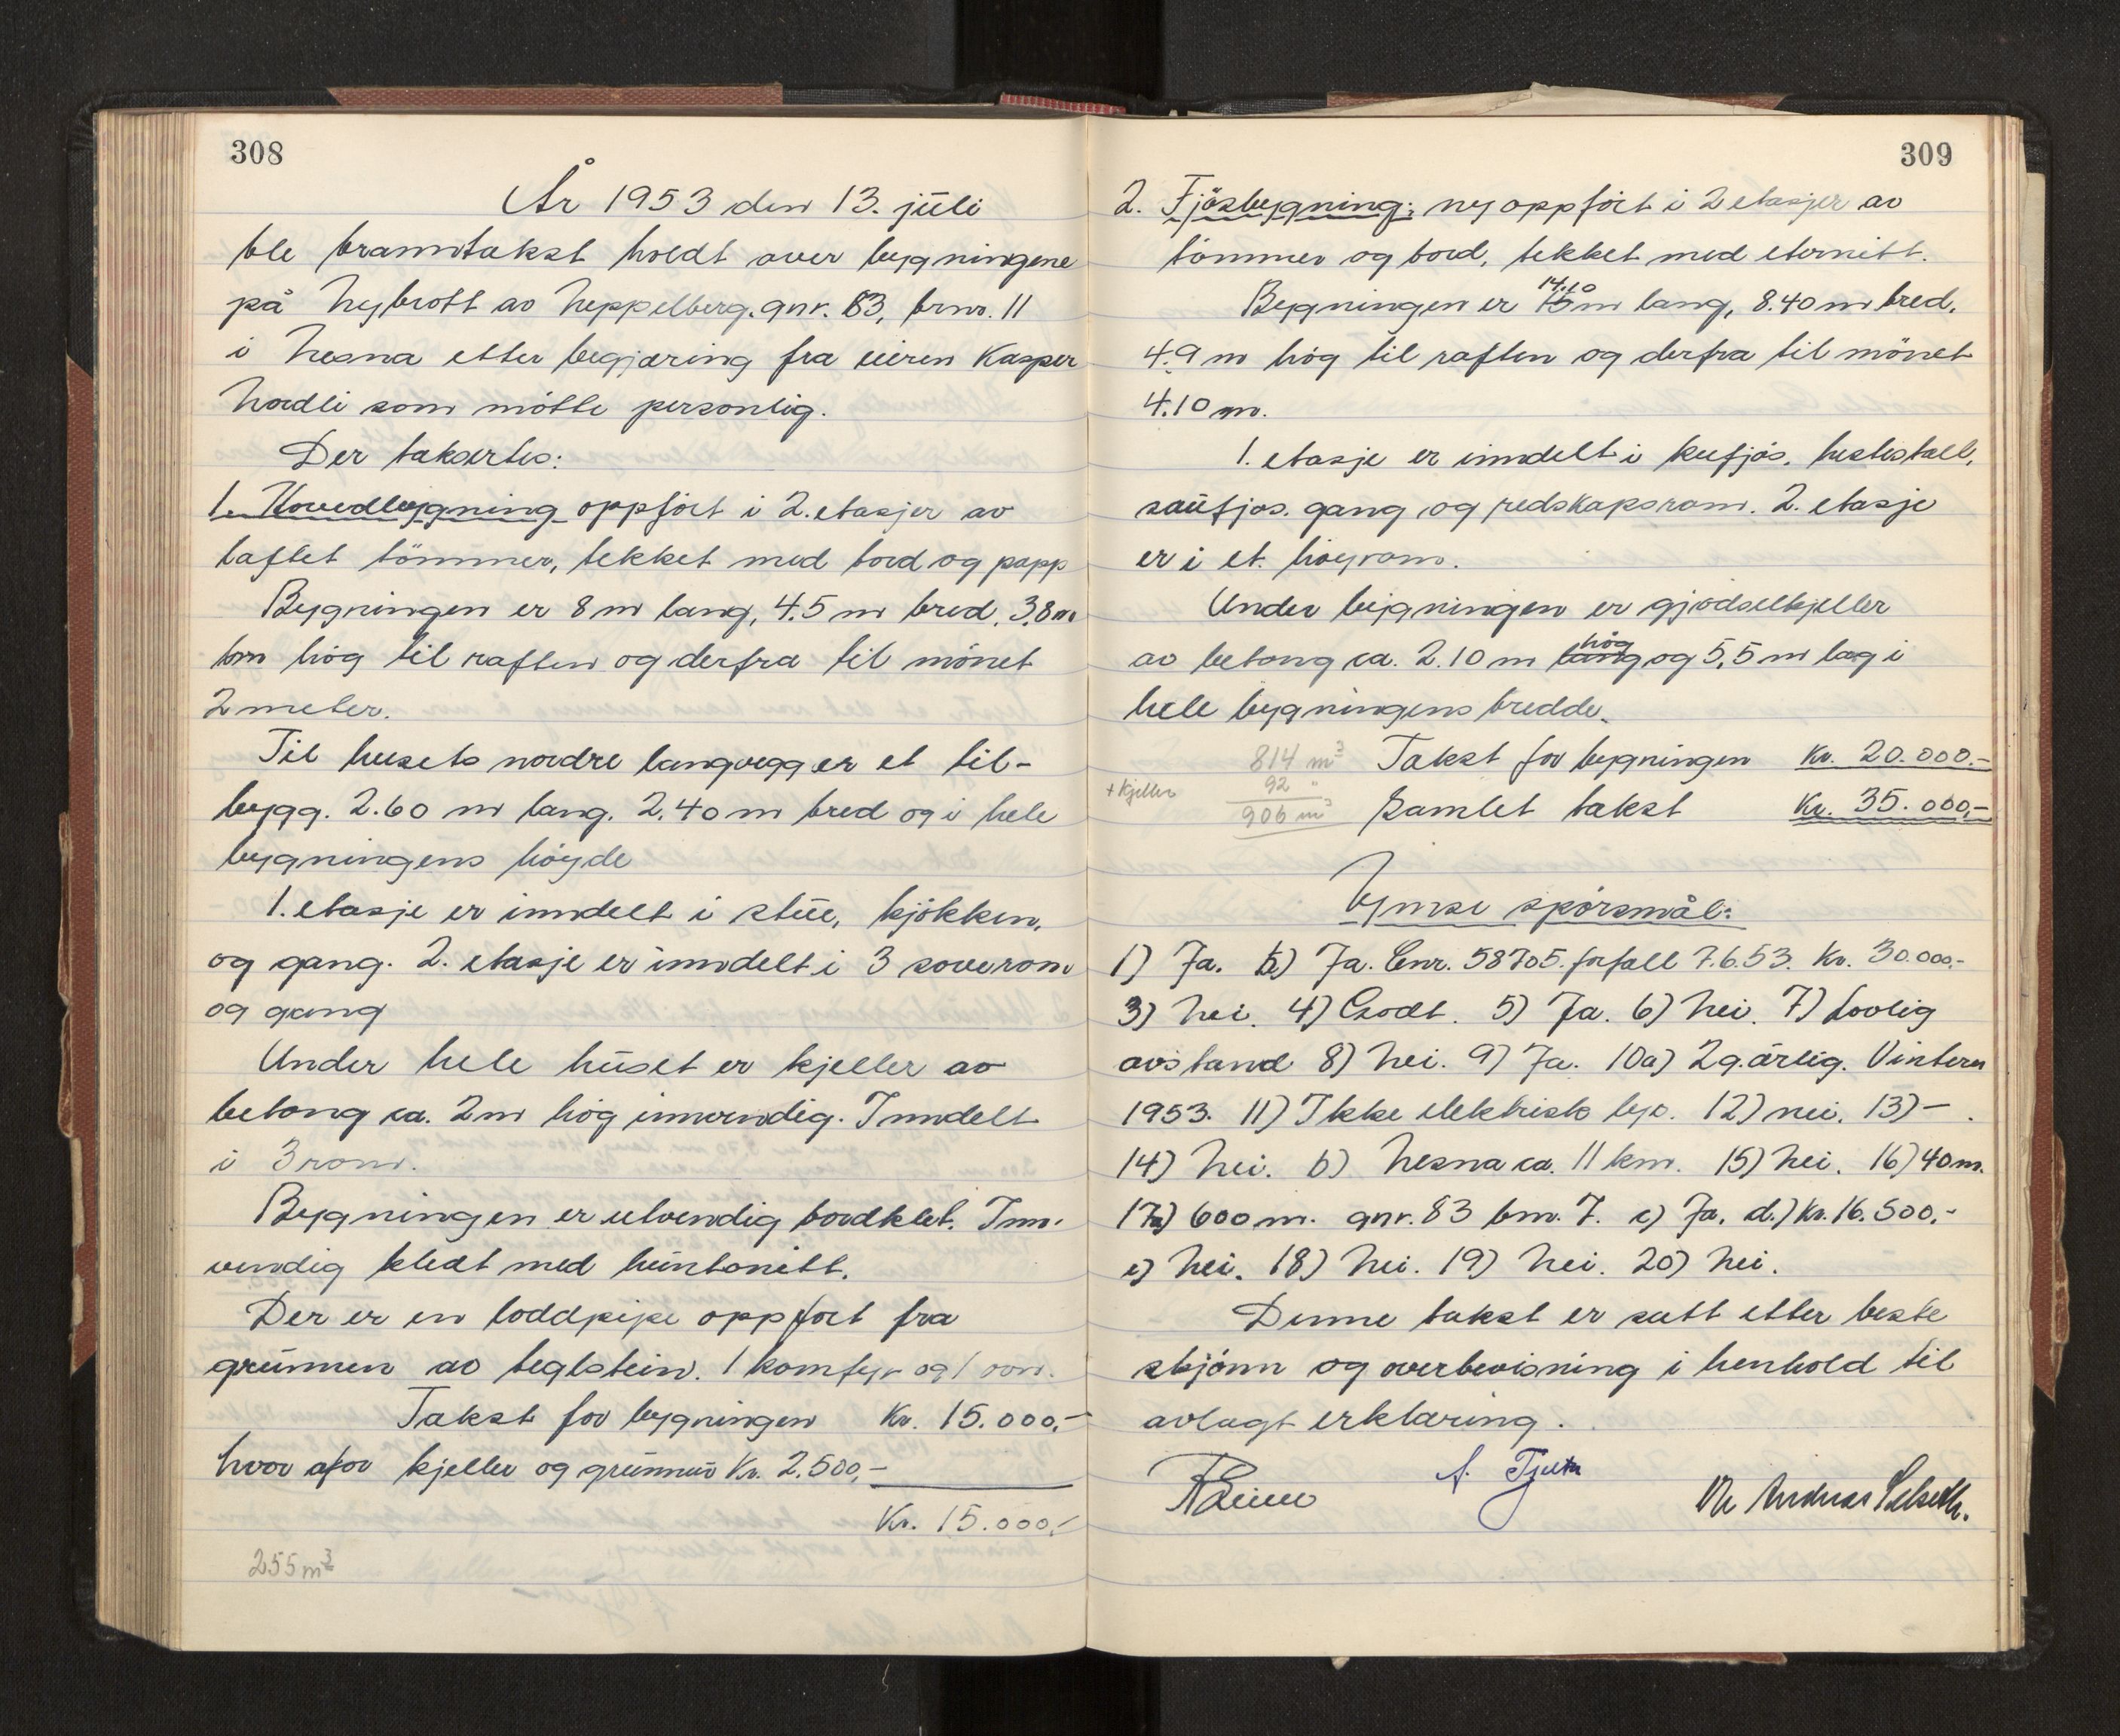 308
År 1953 den 13. juli
ble branntakst holdt over bygningene
på Nybrott av Neppelberg. gnr. 83, brnr. 11
i Nesna etter begjæring fra eieren Kasper
Nordli som møtte personlig.
Der taksertes:
1. Hovedbygning oppført i 2. etasjer av
laftet tömmer, tekket med bord og papp
Bygningen er 8 m lang, 4.5 m bred, 3.8 m
hög til raften og derfra til mönet
2 meter.
Til husets nordre langvegg er et til-
bygg. 2.60 m lang. 2.40 m bred og i hele
bygningens höyde
1. etasje er inndelt i stue, kjökken,
og gang. 2. etasje er inndelt i 3 soverom
og gang
Under hele huset er kjeller av
betong ca. 2 m hög innvendig. Inndelt
i 3 rom.
Bygningen er utvendig bordkled. Inn-
vendig kledt med huntonitt.
Der er en loddpipe oppført fra
grunnen av teglstein. 1 komfyr og 1 ovn.
Takst for bygningen Kr. 15.000,-
hvor afor kjeller og grunnmur Kr. 2.500,-
Kr. 15.000,-
255 m³
309
2. Fjösbygning: ny oppfört i 2 etasjer av
tömmer og bord, tekket med eternitt.
14.10
Bygningen er 15 m lang, 8.40 m bred,
4.9 m hög til raften og derfra til mönet
4.10 m.
1. etasje er inndelt i kufjös, hestestall,
saufjøs. gang og redskapsrom. 2. etasje
er i et höyrom.
Under bygningen er gjödselkjeller
hög
av betong ca. 2.10 m lang og 5,5 m lag i
hele bygningens bredde.
814 m³ Takst for bygningen Kr. 20.000.-
+ kjeller 92 "
906 m³ Samlet takst Kr. 35.000,-
Ymse spörsmål:
1) Ja. b) Ja. Enr. 58705. forfall 7.6.53. Kr. 30.000,-
3) Nei. 4) Godt. 5) Ja. 6) Nei. 7) Lovlig
avstand 8) Nei. 9) Ja. 10a) 2 g. årlig. Vinteren
1953. 11) Ikke elektrisk lys. 12) nei. 13) - .
14) Nei. b) Nesna ca. 11 km. 15) Nei. 16) 40 m.
17a) 600 m. gnr. 83 bnr. 7. c) Ja. d.) Kr. 16.500,-
e) Nei. 18) Nei. 19) Nei. 20) Nei.
Denne takst er satt etter beste
skjönn og overbevisning i henhold til
avlagt erklæring.